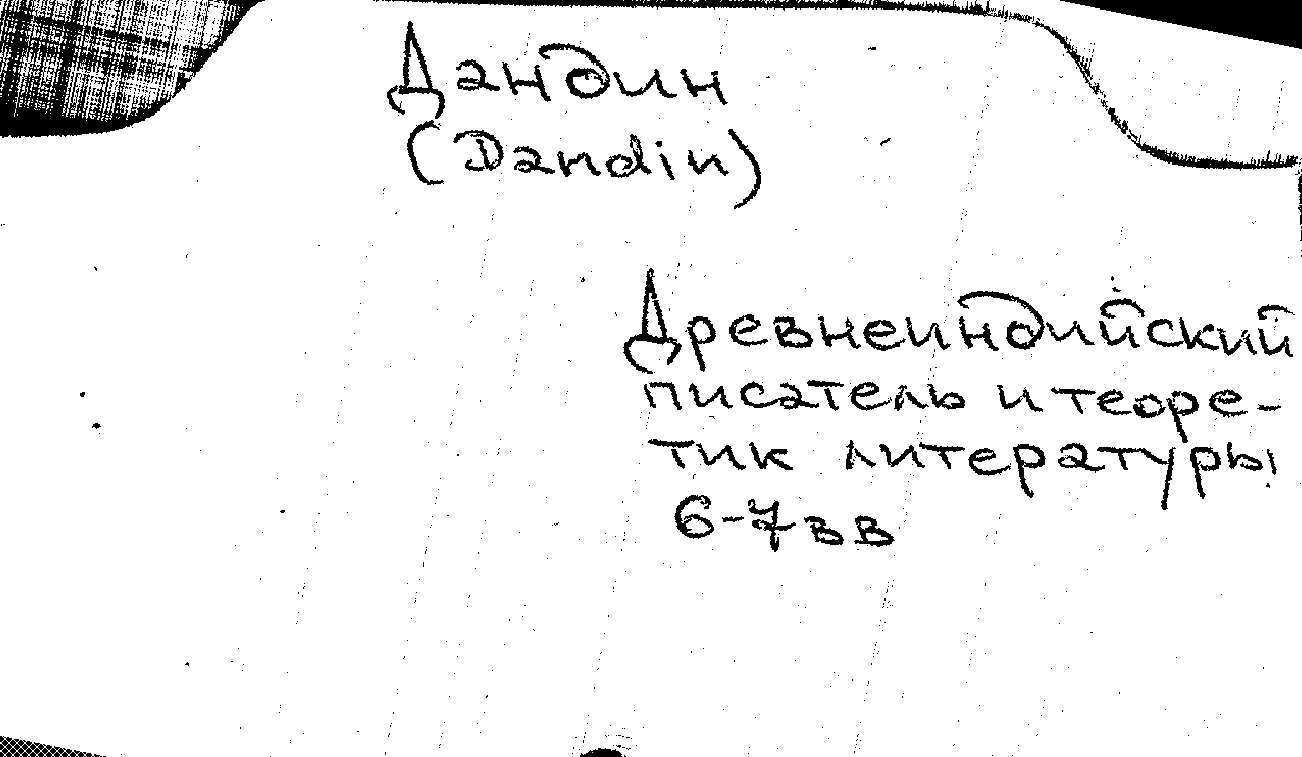 Дандин
(Dandin)
Древнеиндийский
писатель и теоре-
тик литературы
6-7 вв